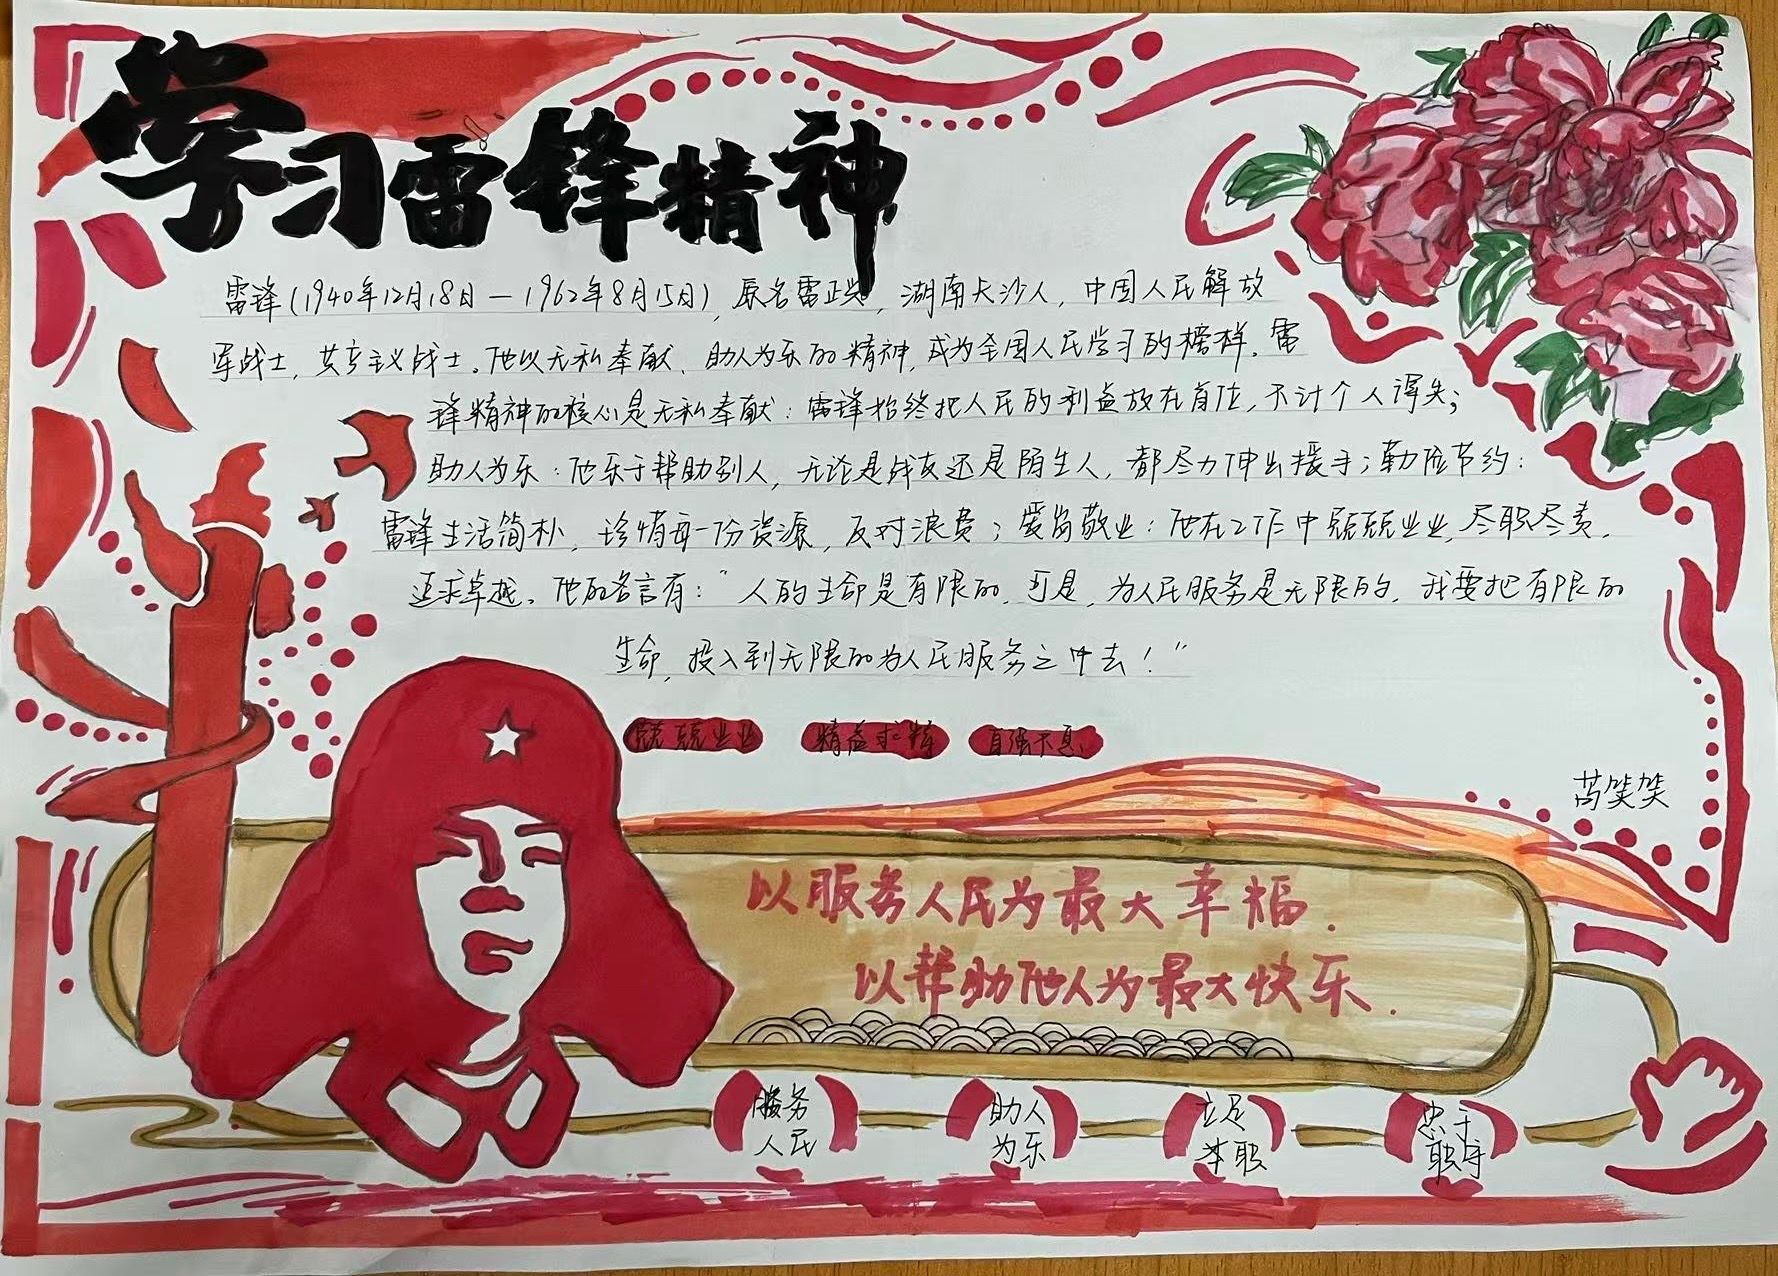 学习雷锋精神
雷锋(1940年12月18日—1962年8月15日),原名雷正兴,湖南长沙人,中国人民解放
军战士,共产主义战士。他以无私奉献、助人为乐的精神,成为全国人民学习的榜样。雷
锋精神的核心是无私奉献:雷锋始终把人民的利益放在首位,不计个人得失;
助人为乐:他乐于帮助别人,无论是战友还是陌生人,都尽力伸出援手;勤俭节约:
雷锋生活简朴,珍惜每一份资源,反对浪费;爱岗敬业:他在工作中兢兢业业,尽职尽责,
追求卓越。他的名言有:“人的生命是有限的,可是,为人民服务是无限的,我要把有限的
生命,投入到无限的为人民服务之中去!”
兢兢业业 精益求精 自强不息
笑笑
以服务人民为最大幸福.
以帮助他人为最大快乐.
服务 助人 立足 忠于
人民 为乐 本职 职守